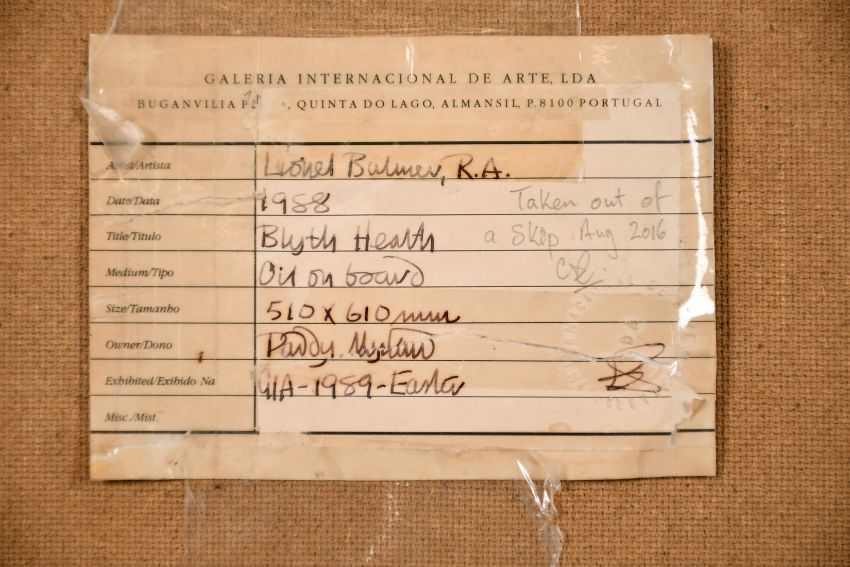 GALERIA INTERNACIONAL DE ARTE, LDA
BUGANVILIA , QUINTA DO LAGO, ALMANSIL, P. 8100 PORTUGAL
Artist/Artista Lionel Bulmer, R.A.
Date/Data 1988 Taken out of
Title/Titulo Blyth Heath a Skip. Aug 2016
Medium/Tipo Oil on board
Size/Tamanho 510 x 610 mm
Owner/Dono Paddy
Exhibited/Exibido Na GIA-1989-Easter
Misc./Mist.